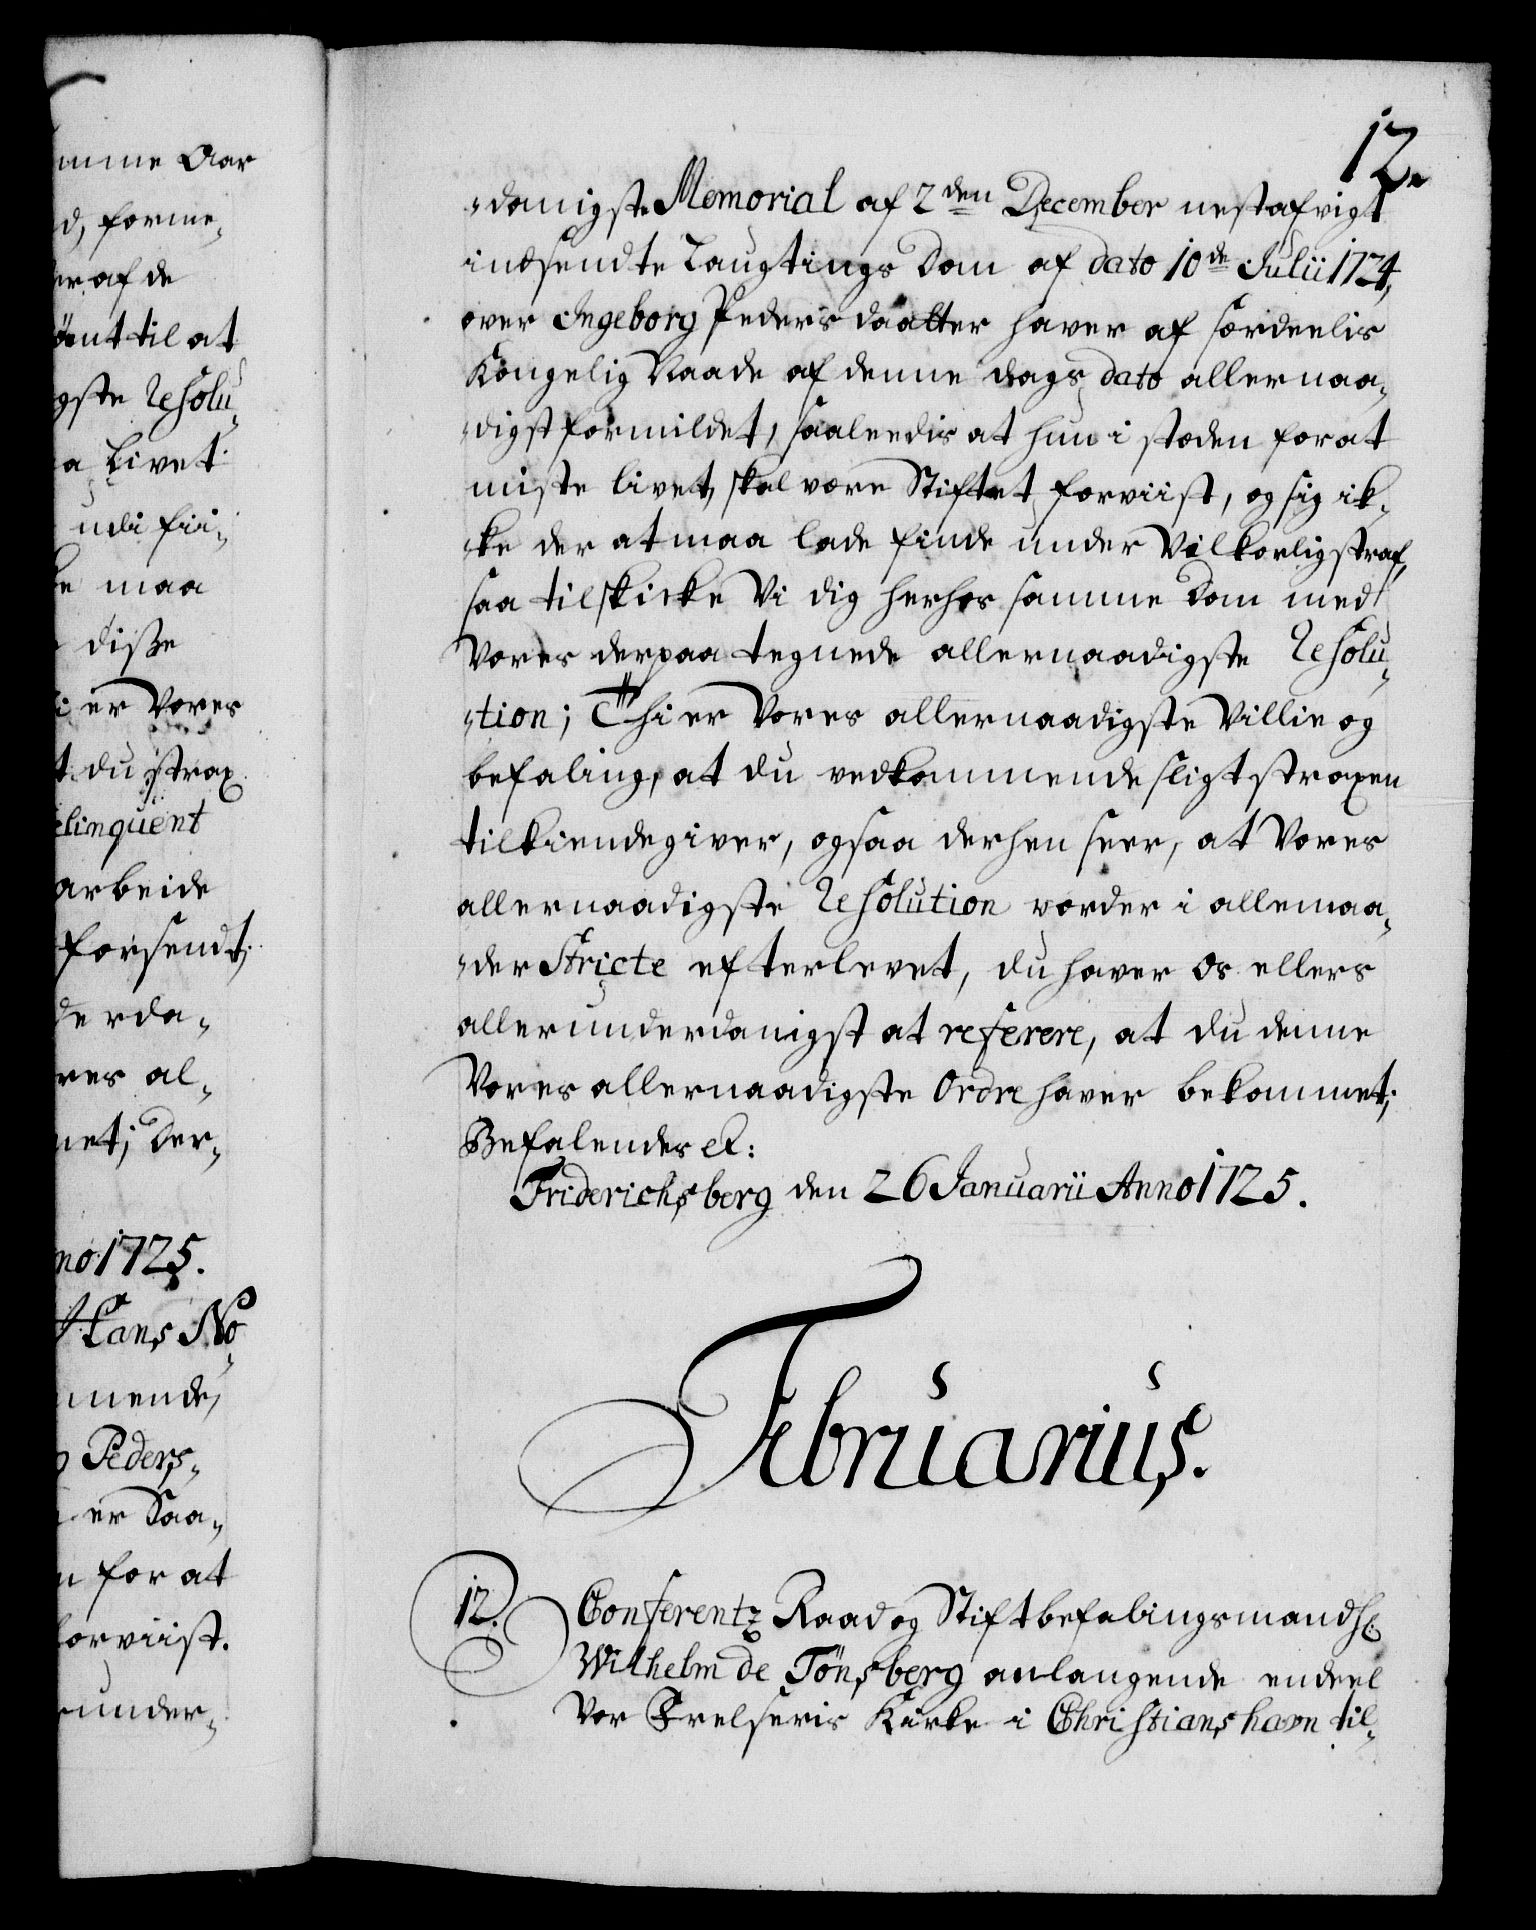 mme Aar
d, forme,
er af de
önt til at
gste Resolu,
a Livet
udi fii,
ke maa
diße
i er Vores
t du strax
elinqvent
arbeide
forsendt;
derda,
res al,
met; Der,
no 1725.
Hans No,
mmende,
Peders,
er Saa,
n for at
forviist.
under,
12.
,danigste Memorial af 2den December nestafvigt
indsendte Laugtings Dom af dato 10de Julii 1724,
over Ingeborg Peders daatter haver af særdeelis
Kongelig Naade af denne dags dato allernaa,
,digst formildet, saaleedis at hun i stæden for at
miste livet, skal være Stiftet forviist, og sig ik,
,ke der at maa lade finde under Vilkorlig straf,
saa tilskicke Vi dig herhos samme Dom med
Vores derpaa tegnede allernaadigste Resolu,
,tion; Thi er Vores allernaadigste Villie og
befaling, at du vedkommende sligt straxen
tilkiendegiver, og saa derhen seer, at Vores
allernaadigste Resolution vorder i alle maa,
,der Stricte efterlevet, du haver os ellers
allerunderdanigst at referere, at du denne
Vores allernaadigste Ordre haver bekommet;
Befalendes etc:
Friderichsberg den 26 Januarii Anno 1725.
Februarius.
12. Conferentz Raad og Stiftbefalingsmand Hr:
Wilhelm de Tönsberg anlangende endeel
Vor Frelseris Kirke i Christianshavn til,